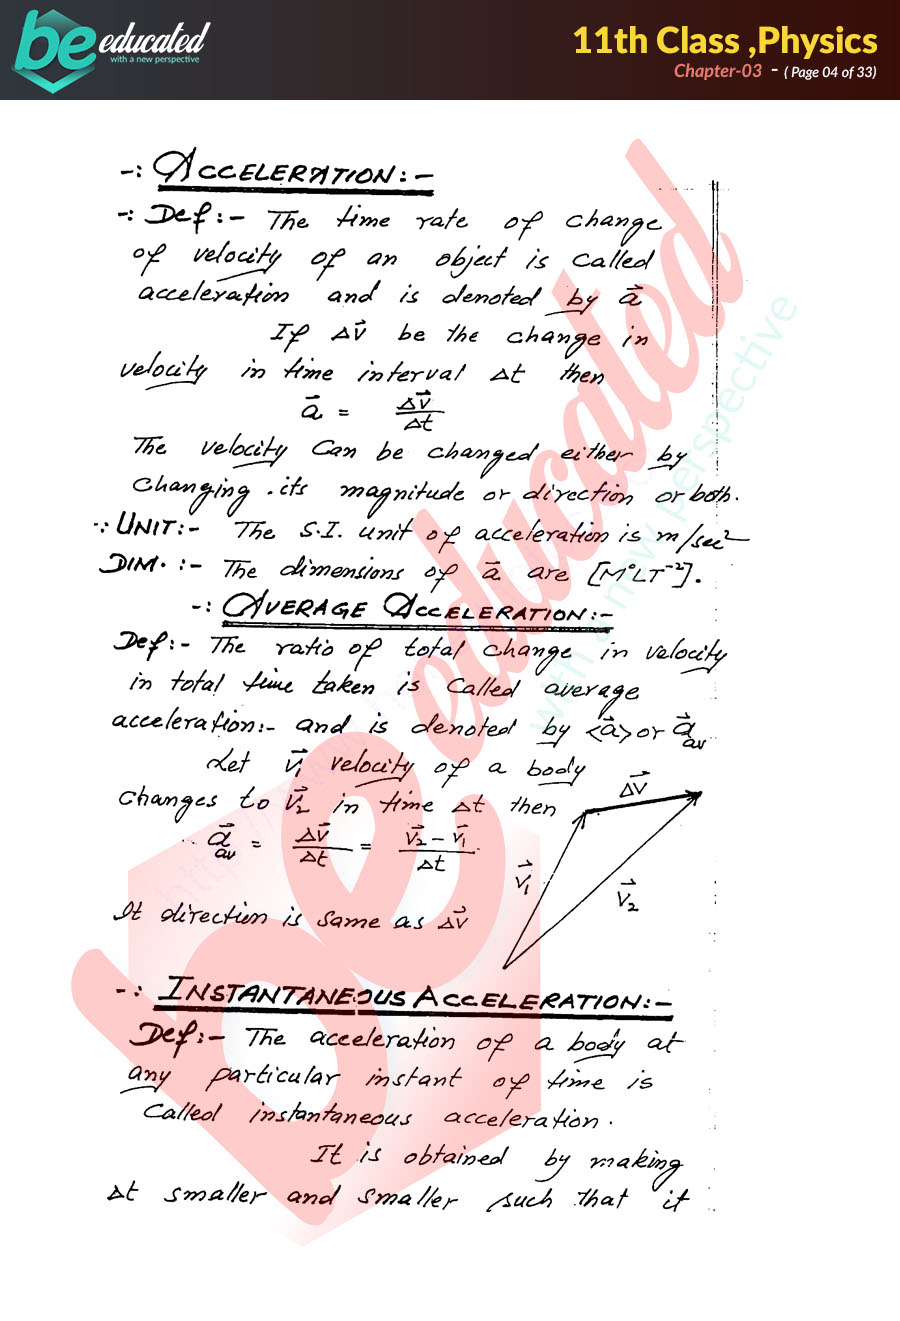 be educated
with a new perspective
11th Class ,Physics
Chapter-03 - ( Page 04 of 33)
-: ACCELERATION:-
-: Def:- The time rate of change
of velocity of an object is called
acceleration and is denoted by a⃗
If Δv⃗ be the change in
velocity in time interval Δt then
a⃗ = Δv⃗/Δt
The velocity Can be changed either by
changing its magnitude or direction or both.
∵ UNIT:- The S.I. unit of acceleration is m/sec²
DIM. :- The dimensions of a⃗ are [M⁰LT⁻²].
-: AVERAGE ACCELERATION:-
Def:- The ratio of total change in velocity
in total time taken is Called average
acceleration:- and is denoted by <a⃗> or a⃗av
Let v⃗₁ velocity of a body
changes to v⃗₂ in time Δt then
a⃗av = Δv⃗/Δt = (v⃗₂ - v⃗₁)/Δt
It direction is same as Δv⃗
Δv⃗
v⃗₁
v⃗₂
-: INSTANTANEOUS ACCELERATION:-
Def:- The acceleration of a body at
any particular instant of time is
Called instantaneous acceleration.
It is obtained by making
Δt smaller and smaller such that it
be educated
with a new perspective